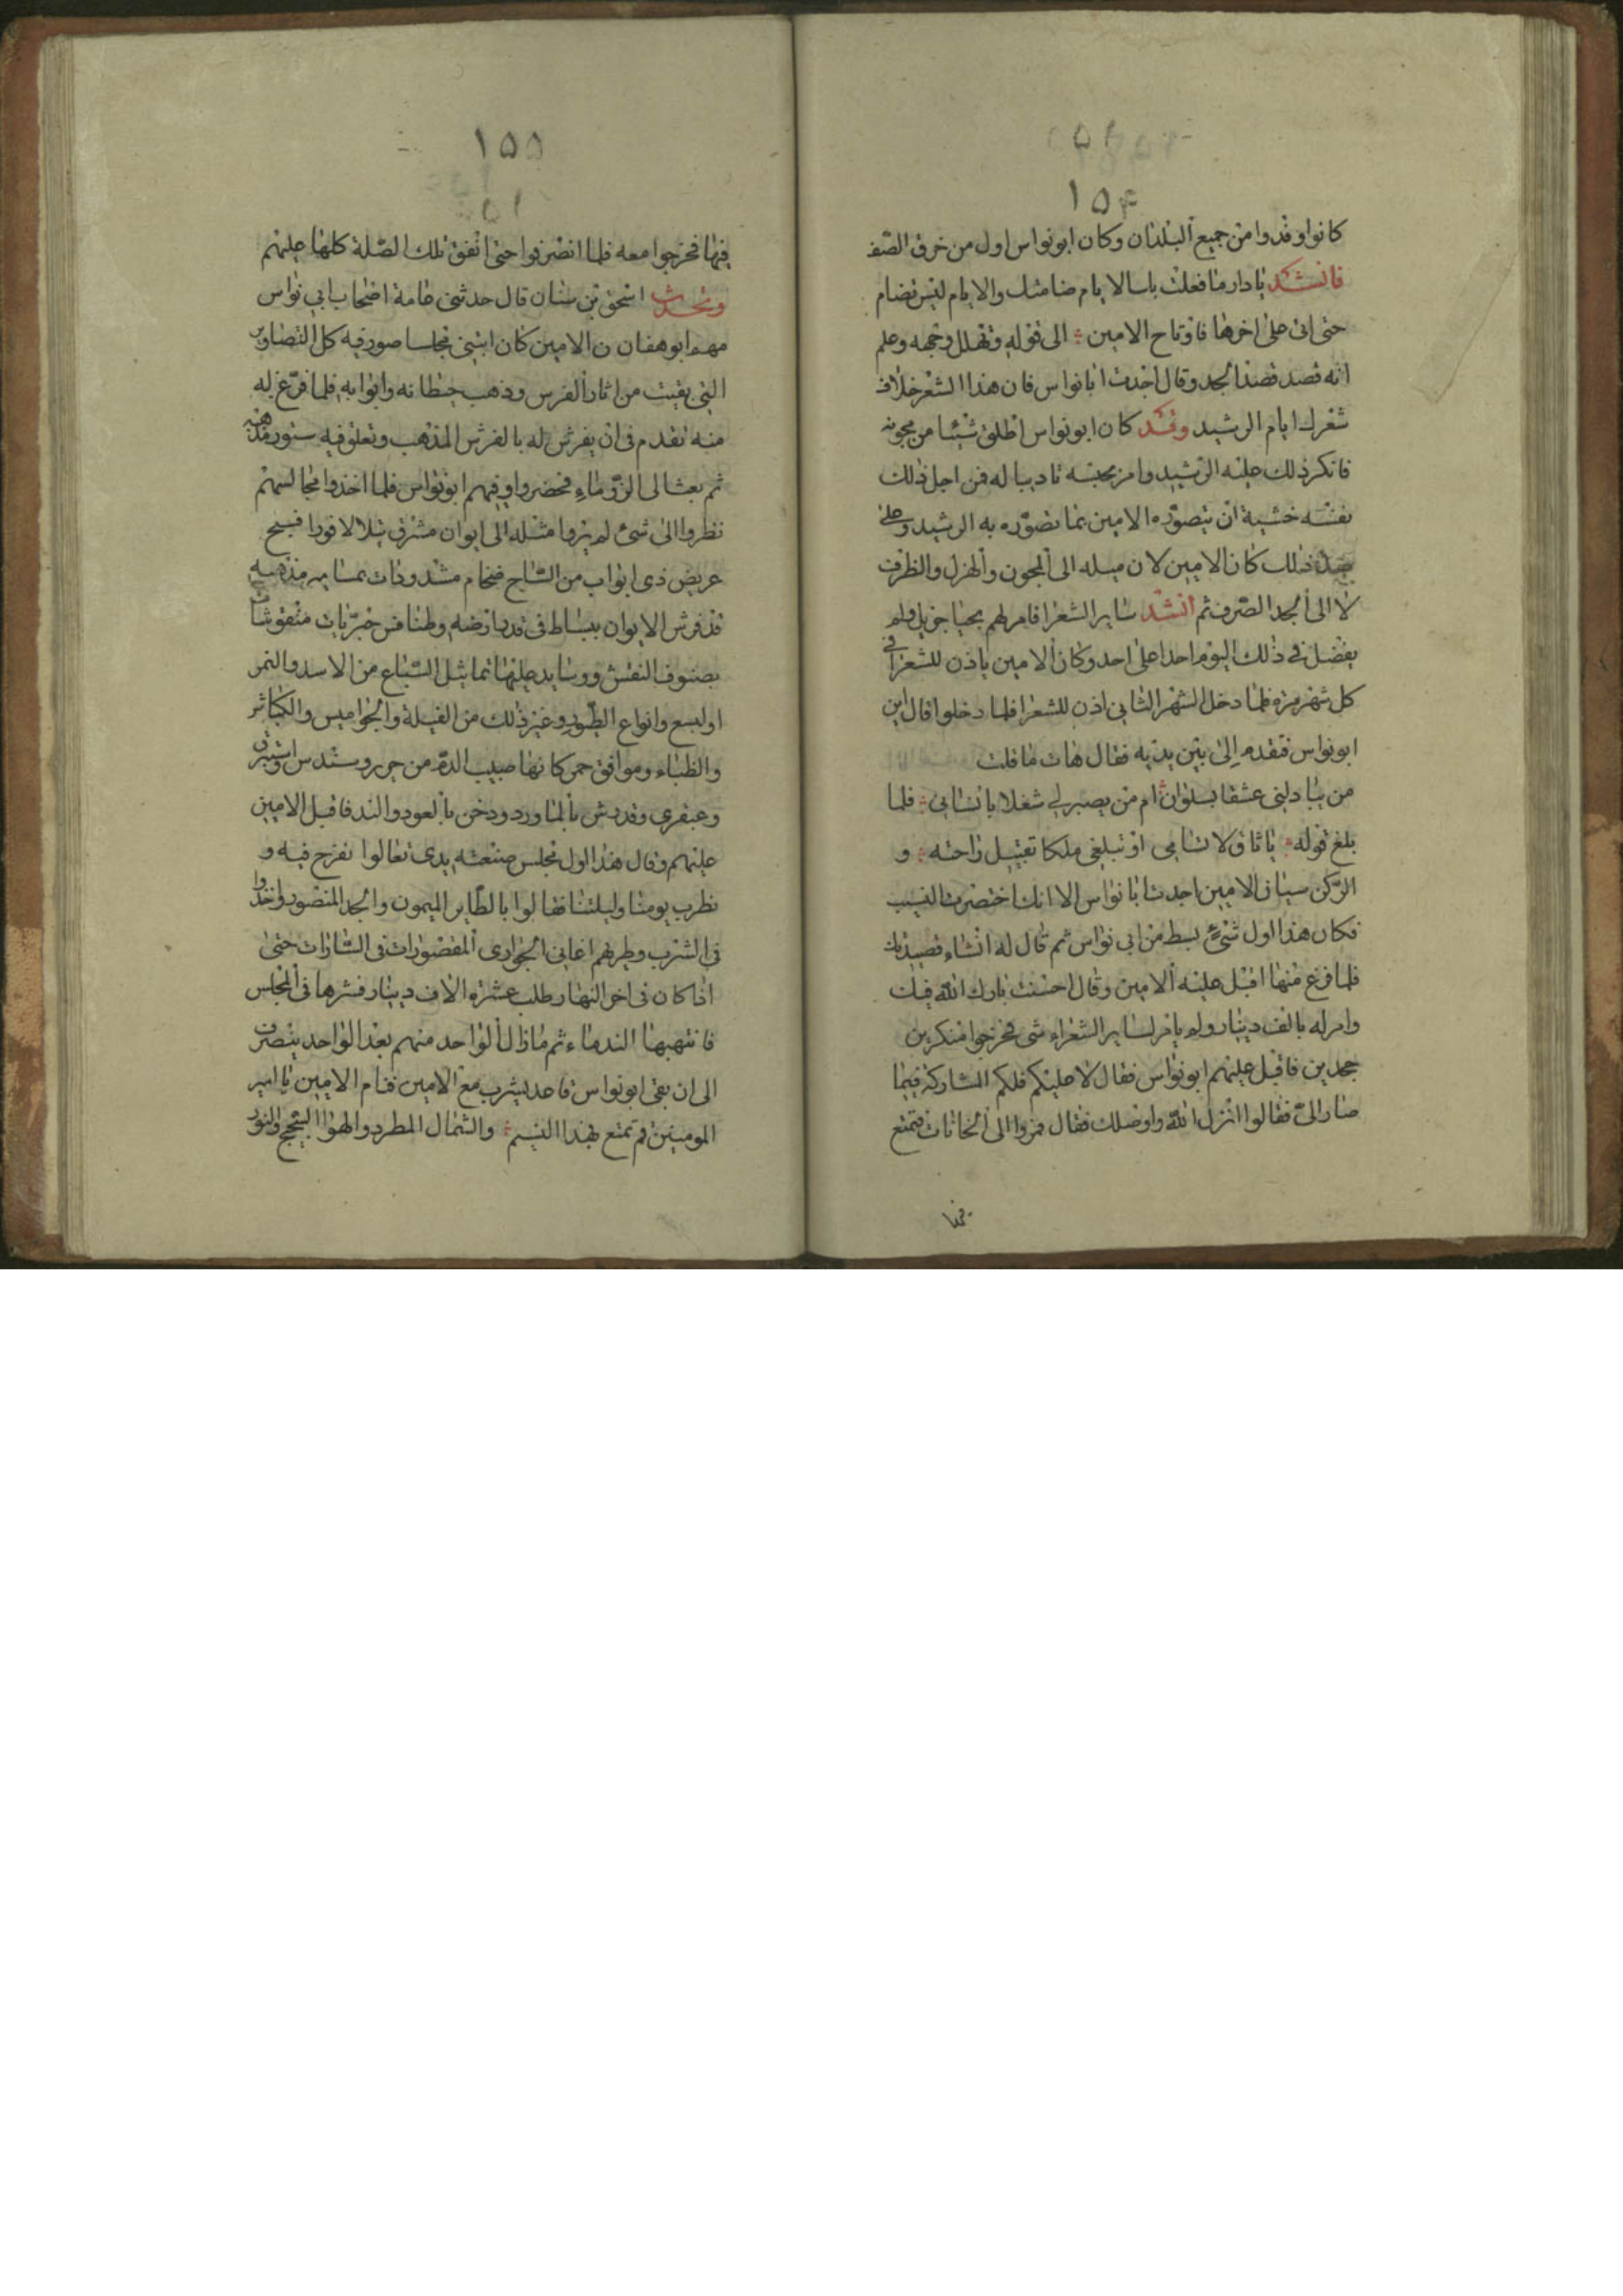 ١٥۴
كانوا وفدوا من جميع البلدان وكان ابو نواس اول من خرق الصف
فانشد يا دار ما فعلت بك الايام ضامتك والايام ليس تضام
حتى اتى على اخرها فارتاح الامين الى قوله وتهلل وجهه وعلم
انه قصد قصد الجد وقال اجدت ابا نواس فان هذا الشعر خلاف
شعرك ايام الرشيد وقد كان ابو نواس اطلق شيئا من مجونه
فانكر ذلك عليه الرشيد وامر بحبسه تاديبا له فمن اجل ذلك
نفسه خشية ان يتصوره الامين بما تصوره به الرشيد وعلى
ضد ذلك كان الامين لان ميله الى المجون والهزل والظرف
لا الى الجد الصرف ثم انشد ساير الشعرا فامر لهم بحبا جزيل ولم
يفضل في ذلك اليوم احدا على احد وكان الامين ياذن للشعرا في
كل شهر مرة فلما دخل الشهر الثاني اذن للشعرا فلما دخلوا قال اين
ابو نواس فتقدم الى بين يديه فقال هات ما قلت
من يبادلني عشقا بسلوان ام من يصير لي شغلا بانسان فلما
بلغ قوله يا ناق لا تسامي او تبلغي ملكا تقبيل راحته و
الركن سيان الامين اجدت ابا نواس الا انك اختصرت النسيب
فكان هذا اول شئ بسط من ابي نواس ثم قال له انشاء قصيدتك
فلما فرغ منها اقبل عليه الامين وقال احسنت بارك الله فيك
وامر له بالف دينار ولم يامر لساير الشعراء شى فخرجوا منكرين
فاقبل عليهم ابو نواس فقال لا عليكم فلكم المشاركة فيما
صار الى فقالوا الله واوصلك فقال مروا الى الخانات فتمتع
١٥٥
فيها فخرجوا معه فلما انصرفوا حتى انفق تلك الصلة كلها عليهم
وتحدث اسحق بن سنان قال حدثني عامة اصحاب ابي نواس
مهم ابو هفان ن الامين كان ابتنى مجلسا صور فيه كل التصاوير
التي بقيت من اثار الفرس وذهب حيطانه وابوابه فلما فرغ له
منه تقدم فى ان يفرش له بالفرش المذهب وتعلق فيه ستور مذهبة
ثم بعث الى الندماء فحضروا وفيهم ابو نواس فلما اخذوا مجالسهم
نظروا الى شئ لم يروا مثله الى ايوان مشرق يتلالا نورا فسيح
عريض ذى ابواب من الساج ضخام مشدودات بمسامير مذهبه
قد فرش الايوان ببساط فى قدر ارضه وطنافس منقوشات
بصنوف النقش ووسايد عليها تماثيل السباع من الاسد والنمر
اولسبع وانواع الطيور وغير ذلك من الفيلة والجواميس والكباش
والظباء كانها صبيب الدم من حرير وسندس واستبرق
وعبقري وقد رش بالماورد ودخن بالعود والند فاقبل الامين
عليهم وقال هذا اول مجلس صنعته يدى تعالوا نفرح فيه و
نطرب يومنا وليلتنا فقالوا بالطاير الميمون والجد المنصور واخذوا
فى الشرب وطربهم اغاني الجوارى المقصورات فى الستارات حتى
اذا كان فى اخر النهار طلب عشرة الاف دينار فنثرها فى المجلس
فانتهبها الندماء ثم ما زال الواحد منهم بعد الواحد ينصرف
الى ان بقى ابو نواس قاعد يشرب مع الامين فنام الامين يا امير
المومنين قم تمتع بهذا النسيم والشمال المطرد والهوا السجسج والنور